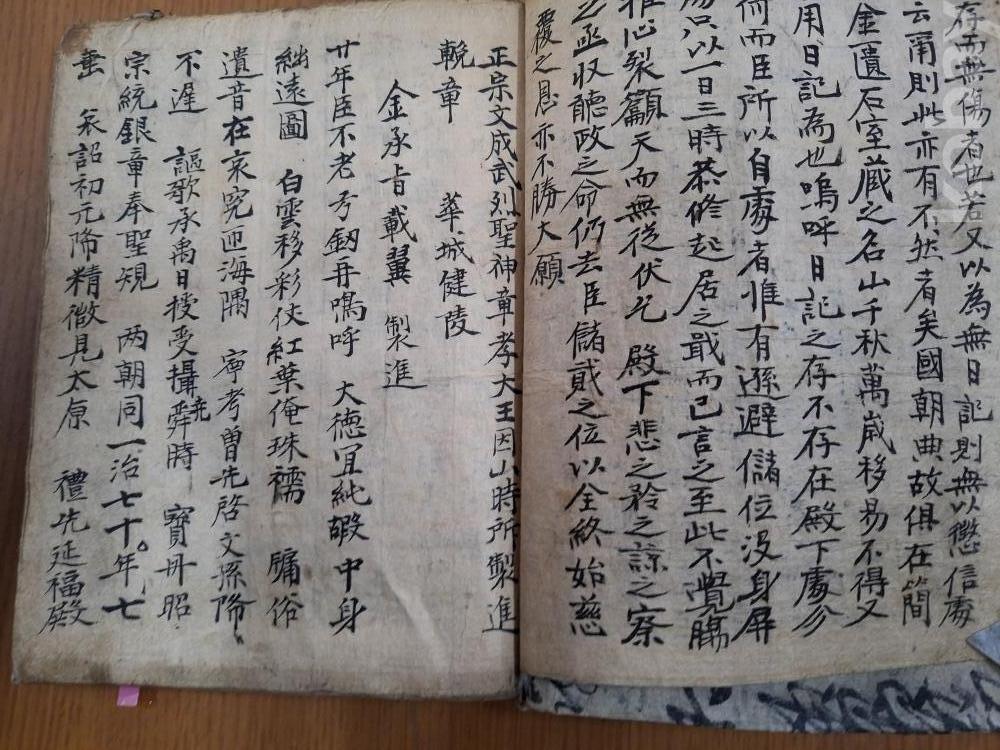 存而無傷者也若又以為無日記則無以懲信處
云甯則此亦有不然者矣國朝典故俱在簡
金匱石室藏之名山千秋萬歲移易不得又
用日記為也嗚呼日記之存不存在殿下處分
何而臣所以自處者惟有遜避儲位没身屏
只以一日三時恭修起居之戢而已言之至此不覺膓
推心裂籲天而無從伏乞 殿下悲之矜之諒之察
之亟収聽政之命仍去臣儲貳之位以全終始慈
覆之恩亦不勝大願
正宗文成武烈聖神章孝大王因山時所製進
輓章 華城健陵
金承旨載翼 製進
廿年臣不老 弓釼再嗚呼 大徳冝純嘏 中身
繼遠圖 白雲移彩仗 紅葉俺珠襦 牗俗
遺音在 哀寃匝海隅 寧考曾先啓 文孫陟
不遅 謳歌承禹日 授受攝堯舜時 寳冊昭
宗統 銀章奉聖規 两朝同一治 七十年七
垂 哀詔初元降 精徴見太原 禮先延福殿